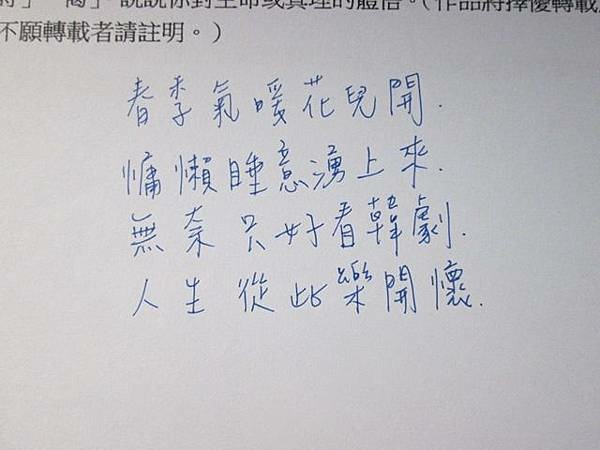 」 說說你對生命或真理的體悟。（作品將擇優轉載
不願轉載者請註明。）
春季氣暖花兒開.
慵懶睡意湧上來.
無奈只好看韓劇.
人生從此樂開懷.